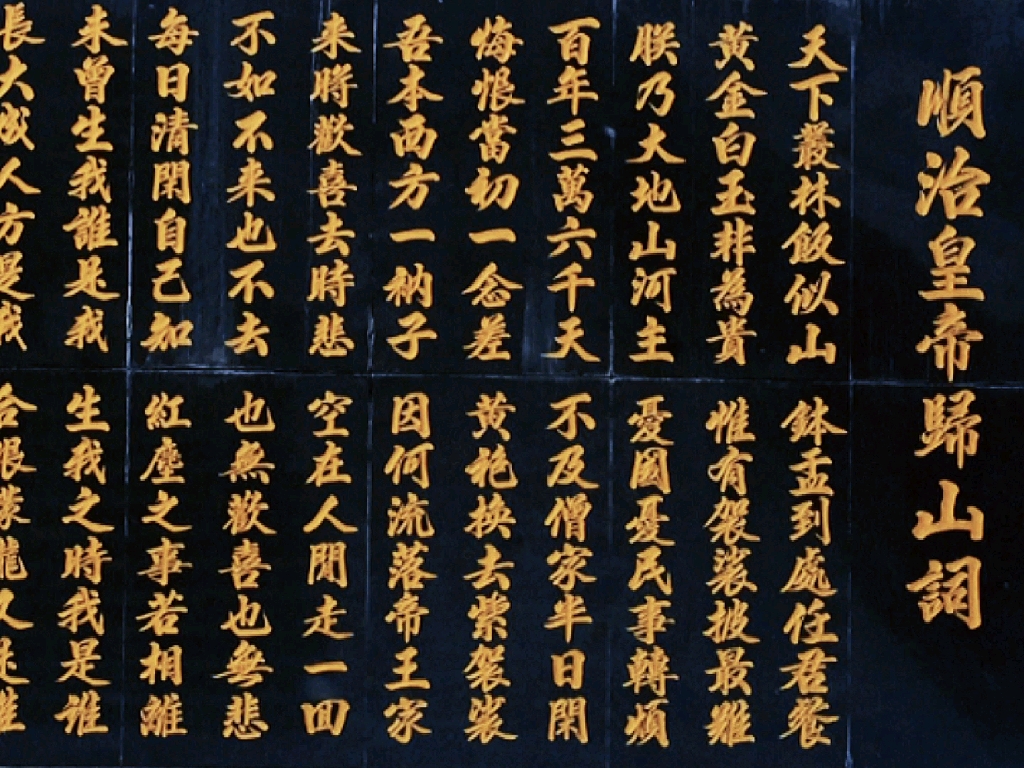 順治皇帝歸山詞
天下叢林飯似山 鉢盂到處任君餐
黃金白玉非為貴 惟有袈裟披最難
朕乃大地山河主 憂國憂民事轉煩
百年三萬六千天 不及僧家半日閑
悔恨當初一念差 黃袍換去紫袈裟
吾本西方一衲子 因何流落帝王家
来將歡喜去時悲 空在人間走一回
不如不来也不去 也無歡喜也無悲
每日清閑自己知 紅塵之事若相離
未曾生我誰是我 生我之時我是誰
長大成人方是我 合眼朦朧又是誰